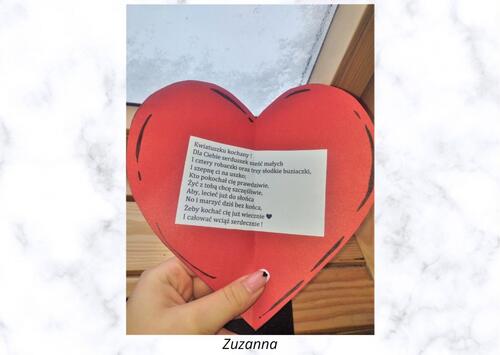 Kwiatuszku kochany !
Dla Ciebie serduszek sześć małych
I cztery robaczki oraz trzy słodkie buziaczki,
I szepnę ci na uszko,
Kto pokochał cię prawdziwie.
Żyć z tobą chcę szczęśliwie,
Aby, lecieć już do słońca
No i marzyć dziś bez końca,
Żeby kochać cię już wiecznie 🖤
I całować wciąż serdecznie !
Zuzanna